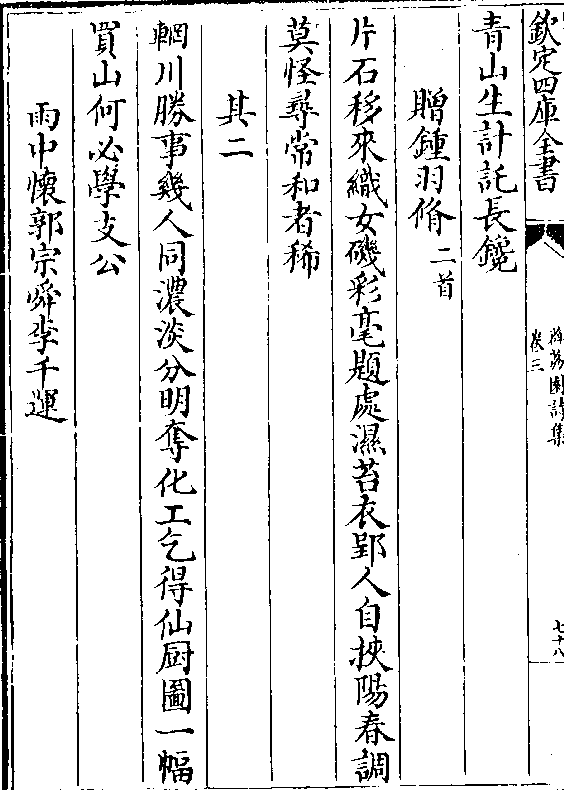 欽定四庫全書
卷三
七十八
青山生計託長鑱
贈鍾羽脩二首
片石移來織女磯彩毫題處濕苔衣郢人自挾陽春調
莫怪尋常和者稀
其二
輞川勝事幾人同濃淡分明奪化工乞得仙厨圖一幅
買山何必學支公
雨中懷郭宗舜李千運